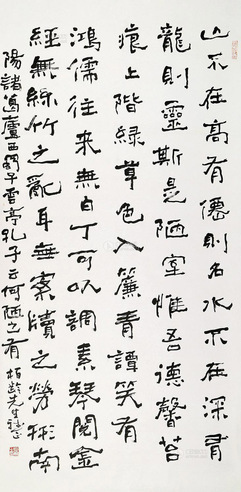 山不在高有德則名水不在深有
龍則靈斯是陋室惟吾德馨苔
痕上階綠草色入簾青譚笑有
鴻儒往來無白丁可以調素琴閱金
經無絲竹之亂耳無案牘之勞形南
陽諸葛廬西蜀子雲亭孔子云何陋之有 柏齡先生